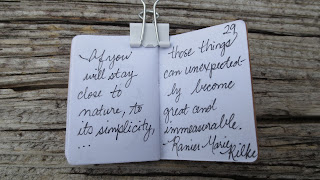 If you
will stay
close to
nature, to
its simplicity,
...
29
those things
can unexpected-
ly become
great and
immeasurable.
-Ranier Marie
Rilke